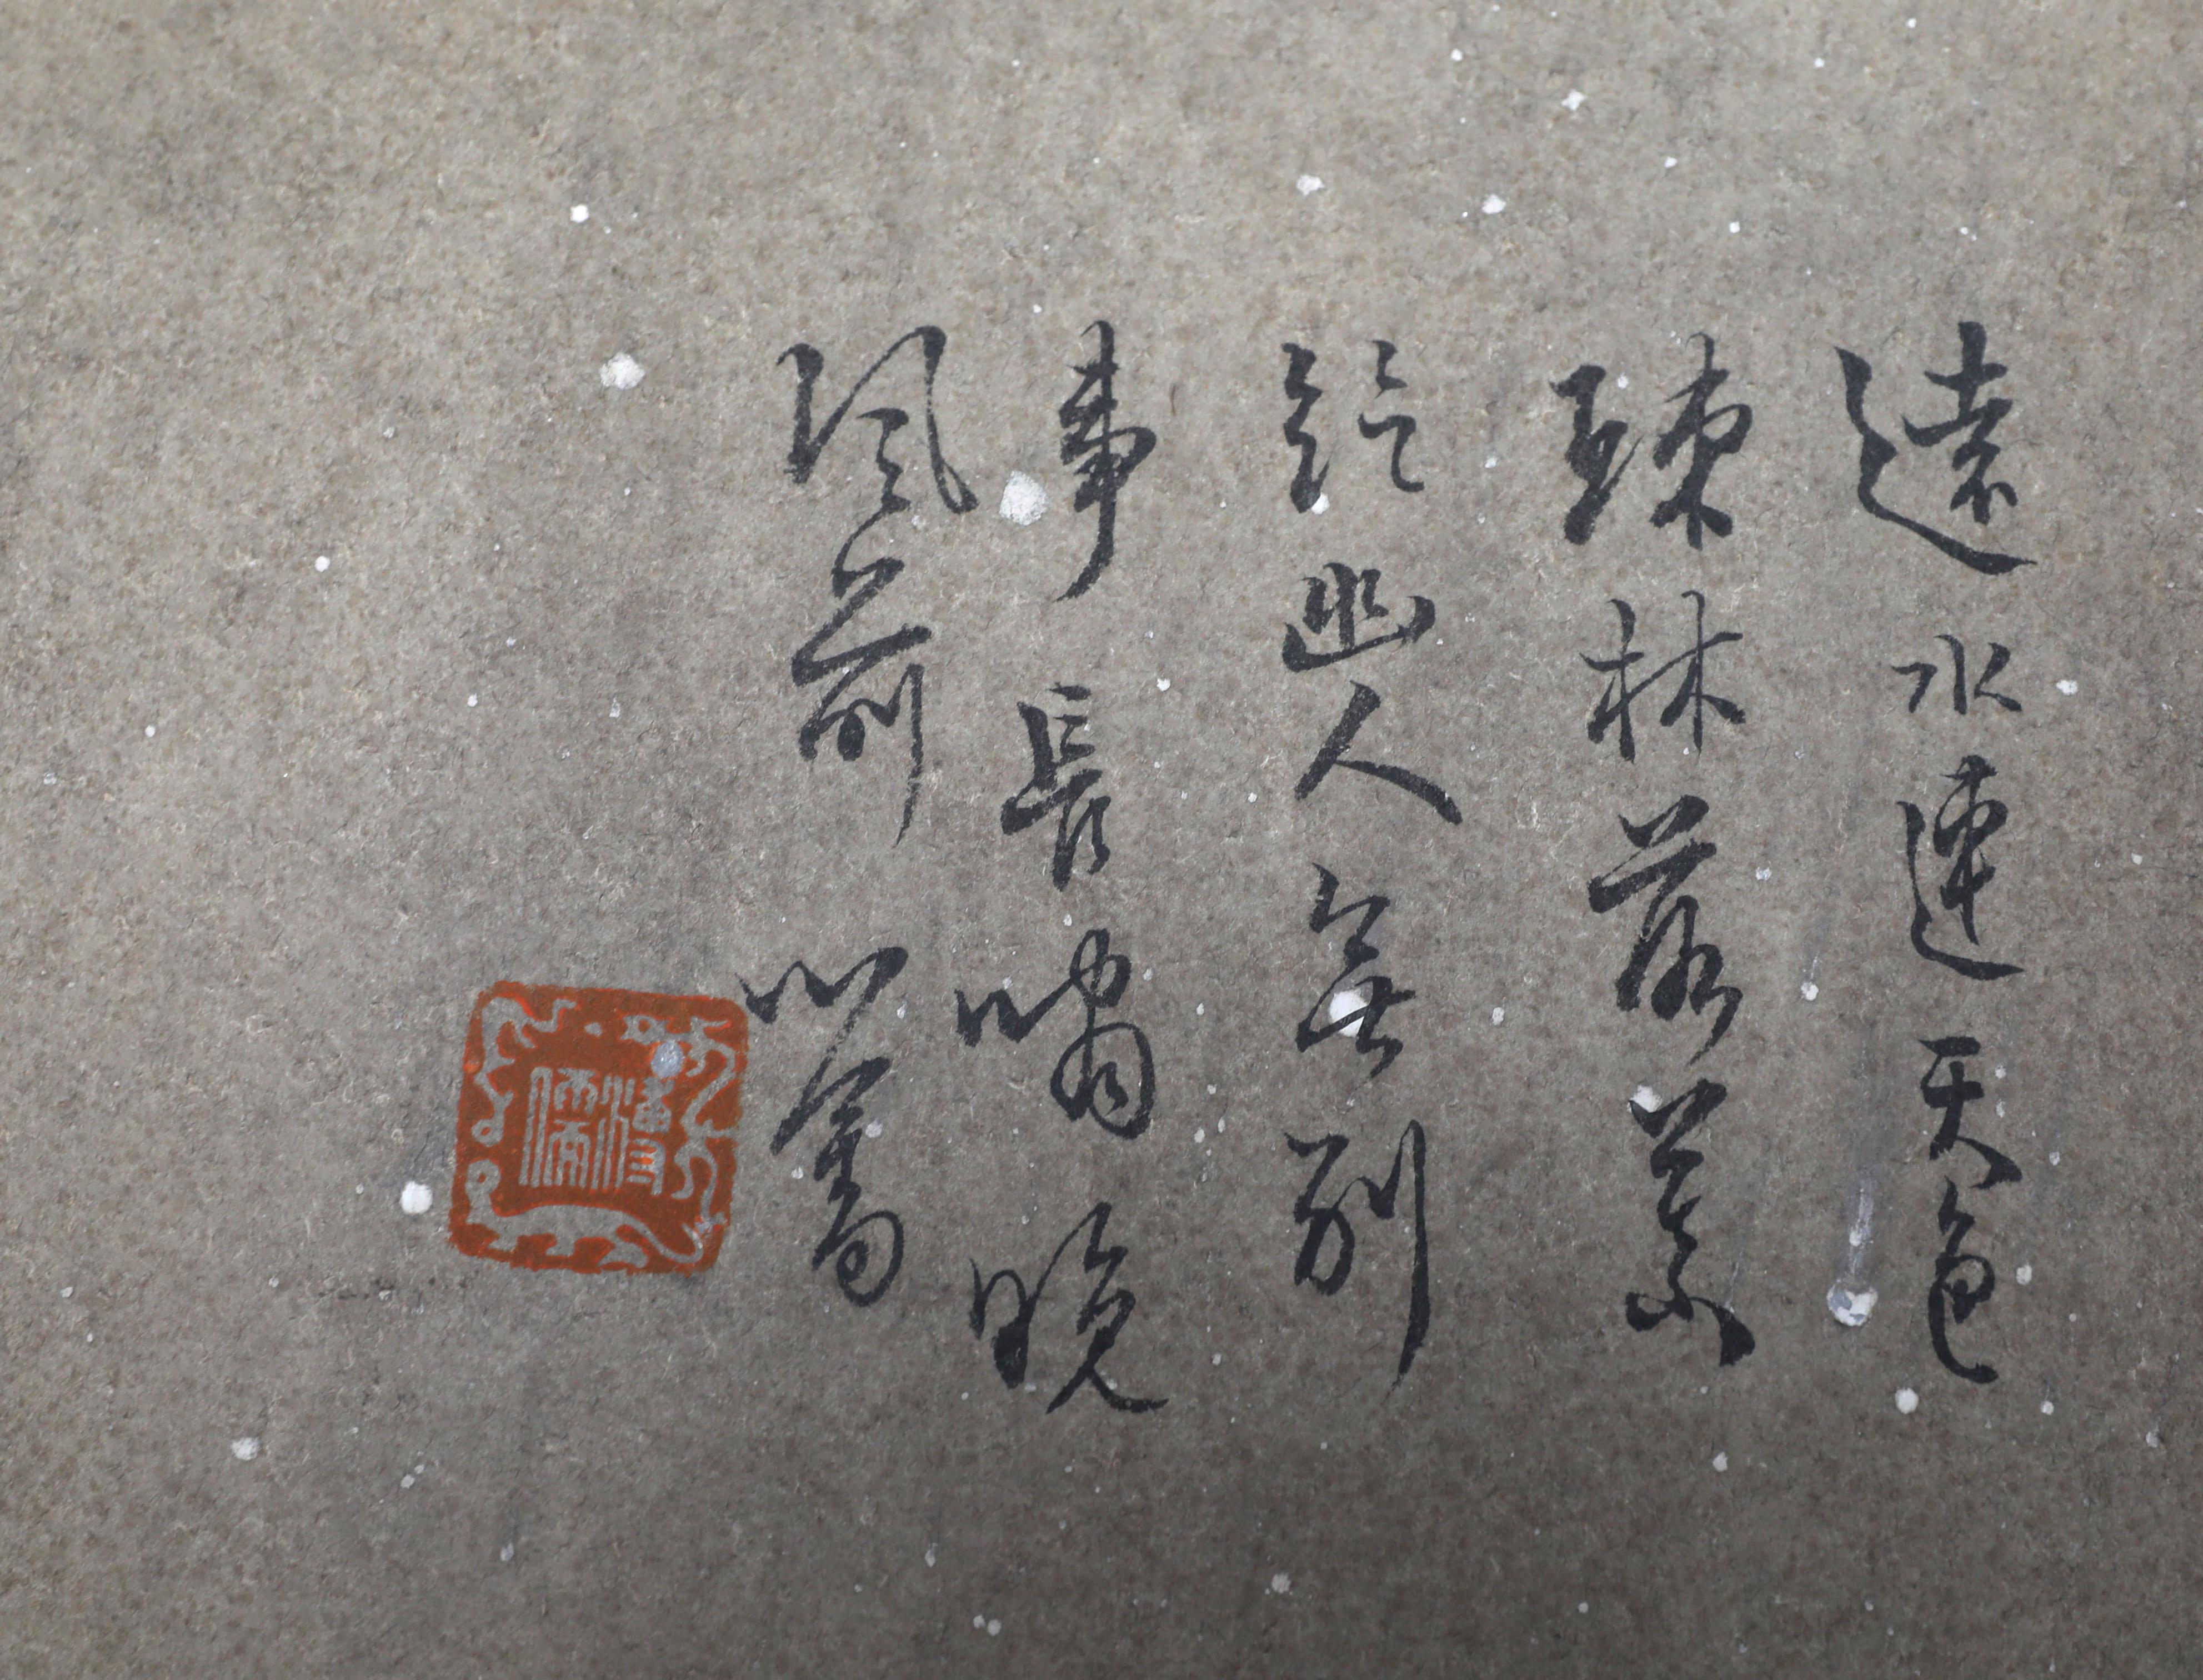 遠水連天色
疎林落葉
幽人無別
事長嘯晚
風前 心畬
溥儒